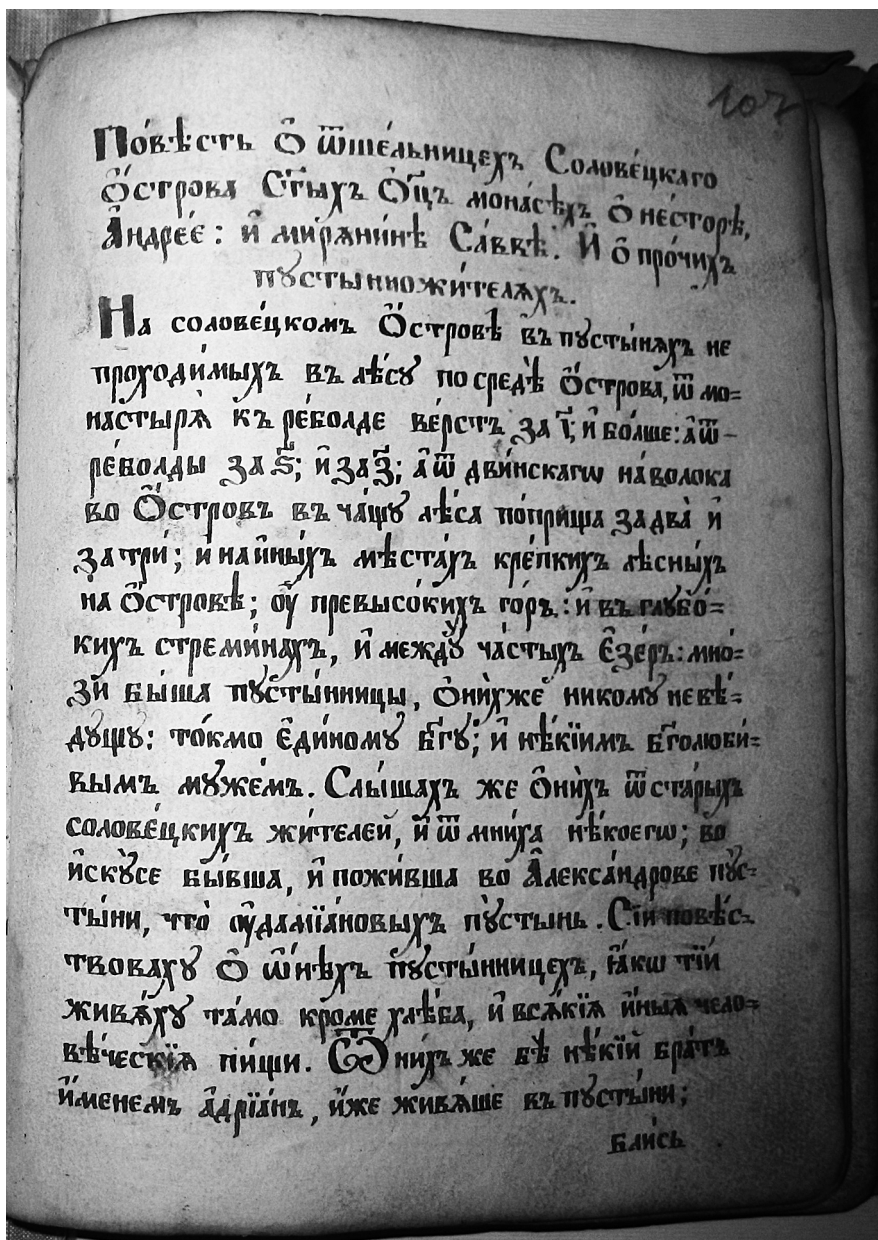 107
По́вѣсть Ѽ ѿше́льницехъ Солове́цкаго
Ѻ҆́строва Ст҃ыхъ Ѻ҆ц҃ъ мона́сѣхъ ѽ не́сторѣ,
А҆ндре́є: и҆ мирѧни́нѣ Са́ввѣ. И҆ ѽ про́чихъ
пꙋстынножи́телѧхъ.
На солове́цкомъ Ѻ҆́стровѣ въ пꙋсты́нѧхъ не
проходи́мыхъ въ лѣ́сꙋ посредѣ̀ Ѻ҆́строва, ѿ мо=
настырѧ̀ къ ре́болде ве́рстъ за і҃; и҆ бо́лше: а҆ ѿ-
ре́болды за ѕ҃; и҆ за з҃; а҆ ѿ дви́нскагѡ на́волока
во Ѻ҆́стровъ въ ча́щꙋ лѣ́са по́прища за два̀ и҆
за трѝ; и҆ на и҆ны́хъ мѣста́хъ крѣ́пкихъ лѣсны́хъ
на Ѻ҆́стровѣ; ᲂу҆ превысо́кихъ го́ръ: и҆ въ глꙋбо́=
кихъ стреми́нахъ, и҆ междꙋ̀ ча́стыхъ є҆зе́ръ: мно́=
зи бы́ша пꙋсты́нницы, ѽ ни́хже никомꙋ невѣ́=
дꙋщꙋ: то́кмо є҆ди́номꙋ бг҃ꙋ; и҆ нѣ́кіимъ бг҃олюби́=
вымъ мꙋже́мъ. Слы́шахъ же ѽ ни́хъ ѿ ста́рыхъ
солове́цкихъ жи́телей, и҆ ѿ мни́ха нѣ́коегѡ; во
и҆скꙋ́се бы́вша, и҆ пожи́вша во А҆лекса́ндрове пꙋс=
ты́ни, что̀ ᲂу҆ даміа́новыхъ пꙋ́стынь. Сіи повѣ́с=
твовахꙋ Ѽ ѡ҆́нѣхъ пꙋсты́нницехъ, ꙗ҆́кѡ тіи
живѧ́хꙋ та́мо кроме хлѣ́ба, и҆ всѧ́кіѧ и҆ны́ѧ чело=
вѣ́ческіѧ пи́щи. Ѿ ни́хъ же бѣ̀ нѣ́кій бра́тъ
и҆́менемъ а҆дріа́нъ, и҆́же живѧ́ше въ пꙋсты́ни;
бли́сь